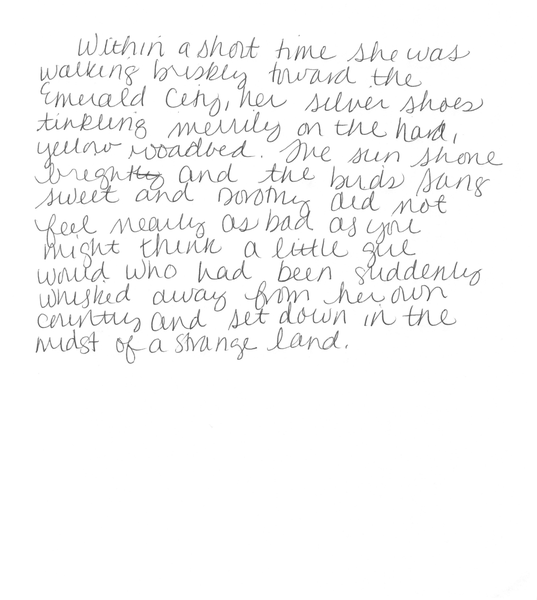 Within a short time she was
walking briskly toward the
Emerald City, her silver shoes
tinkling merrily on the hard,
yellow roadbed. The sun shone
brightly and the birds sang
sweet and Dorothy did not
feel nearly as bad as you
might think a little girl
would who had been suddenly
whisked away from her own
country and set down in the
midst of a strange land.